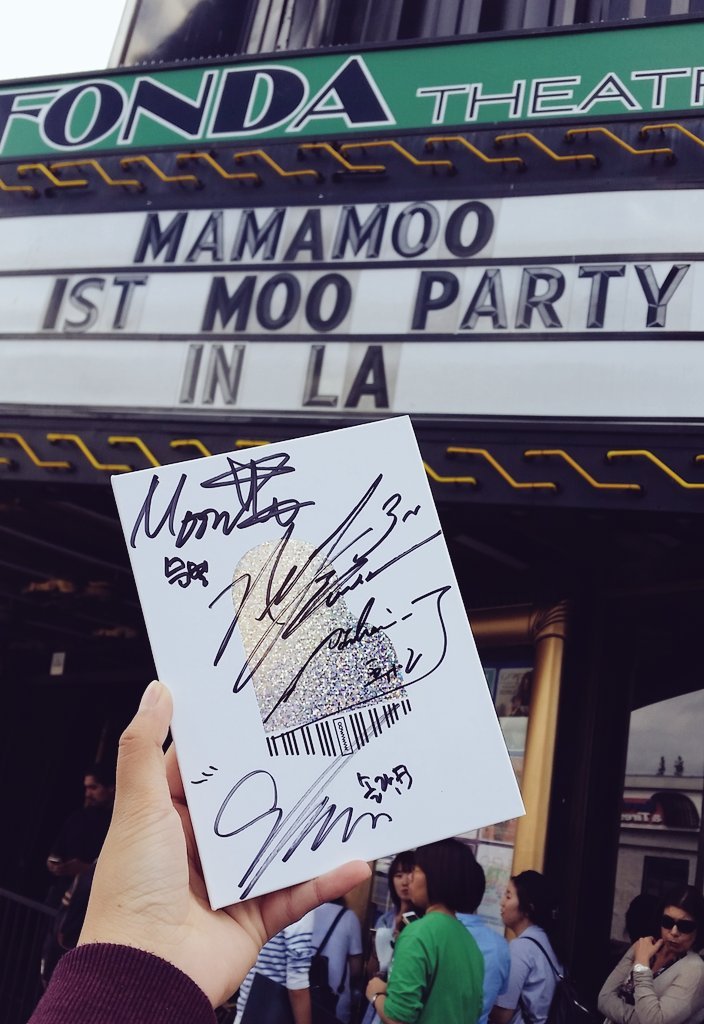 FONDA THEATR
MAMAMOO
1ST MOO PARTY
IN LA
Moon
문별
휘인
솔라
MAMAMOO